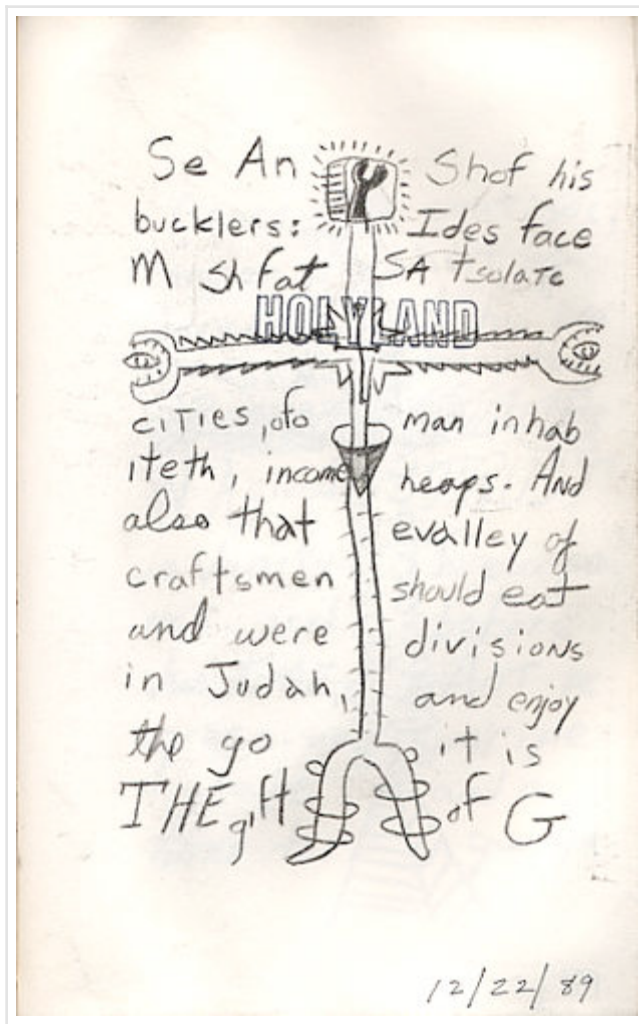 Se An Shof his
bucklers: Ides face
M sh fat SA tsolate
HOLYLAND
cities, ofo man inhab
iteth, income heaps. And
also that evalley of
craftsmen should eat
and were divisions
in Judah, and enjoy
the go it is
THE gift of G
12/22/89